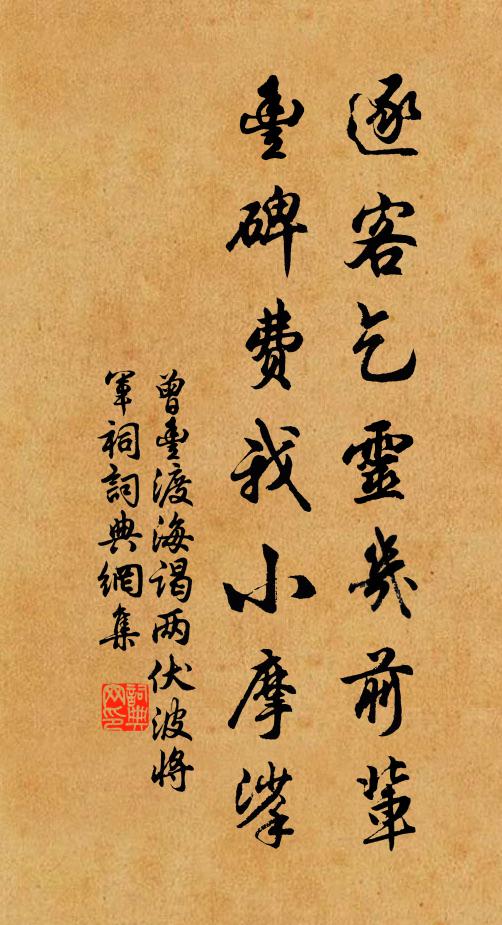 逐客乞靈幾前輩
豐碑費我小摩挲
曾豐渡海謁两伏波將
軍祠詞典網集
詞典网印